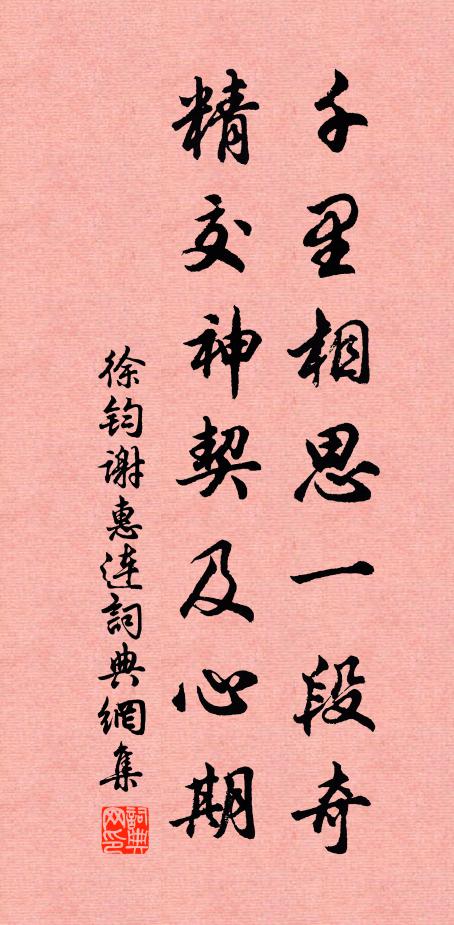 千里相思一段奇
精交神契及心期
徐钧谢惠連詞典網集
詞典网印